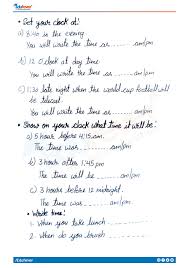 • Set your clock at:
a) 8:40 in the evening
You will write the time as ........ am/pm
b) 12 0 clock at day time
You will write the time as ........ am/pm
c) 1:30 late night when the world-cup football will be telicast
You will write the time as ........ am/pm
• Show on your clock what time it will be:
a) 5 hour before 4:15 am.
The time was ........ am/pm
b) 3 hour after 1:45 pm
The time will be ........ am/pm
c) 3 hours before 12 midnight.
The time was ........ am/pm
• Write time:
1. When you take lunch ........
2. When do you brush ........